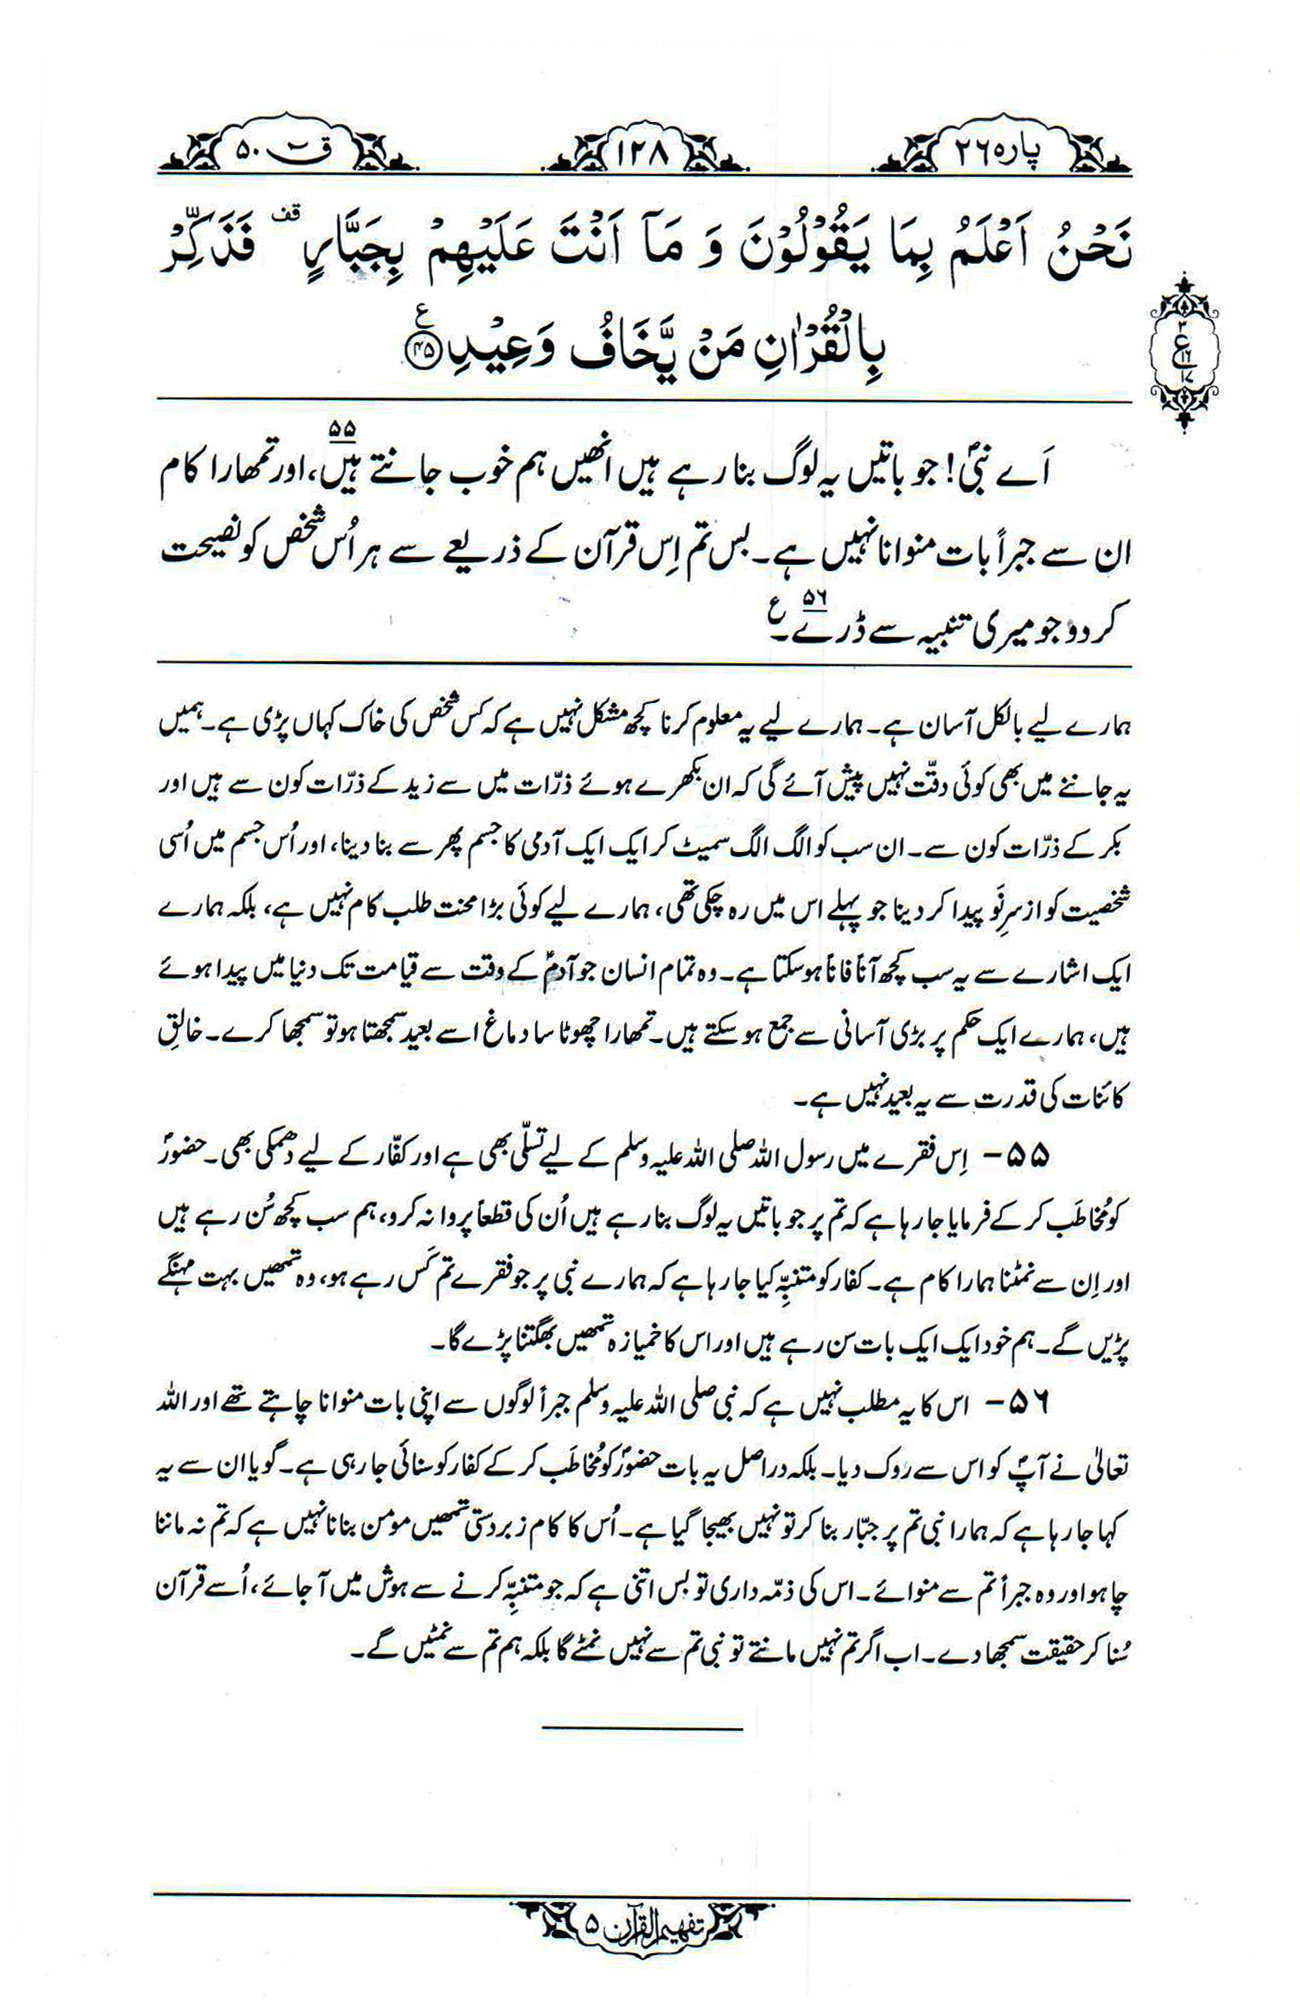 پارہ ۲۶
۱۲۸
قٓ ۵۰
نَحْنُ اَعْلَمُ بِمَا يَقُوْلُوْنَ وَ مَاۤ اَنْتَ عَلَيْهِمْ بِجَبَّارٍ ۫ قف فَذَكِّرْ
بِالْقُرْاٰنِ مَنْ يَّخَافُ وَعِيْدِ ﴿۴۵﴾ ع
۳
ع
۱۶
۱۷
اَے نبیؐ! جو باتیں یہ لوگ بنا رہے ہیں انھیں ہم خوب جانتے ہیں،۵۵ اور تمھارا کام
ان سے جبراً بات منوانا نہیں ہے۔ بس تم اِس قرآن کے ذریعے سے ہر اُس شخص کو نصیحت
کر دو جو میری تنبیہ سے ڈرے۔۵۶ ع
ہمارے لیے بالکل آسان ہے۔ ہمارے لیے یہ معلوم کرنا کچھ مشکل نہیں ہے کہ کس شخص کی خاک کہاں پڑی ہے۔ ہمیں
یہ جاننے میں بھی کوئی دقّت نہیں پیش آئے گی کہ ان بکھرے ہوئے ذرّات میں سے زید کے ذرّات کون سے ہیں اور
بکر کے ذرّات کون سے۔ ان سب کو الگ الگ سمیٹ کر ایک ایک آدمی کا جسم پھر سے بنا دینا، اور اُس جسم میں اُسی
شخصیت کو از سرِ نَو پیدا کر دینا جو پہلے اس میں رہ چکی تھی، ہمارے لیے کوئی بڑا محنت طلب کام نہیں ہے، بلکہ ہمارے
ایک اشارے سے یہ سب کچھ آناً فاناً ہو سکتا ہے۔ وہ تمام انسان جو آدمؑ کے وقت سے قیامت تک دنیا میں پیدا ہوئے
ہیں، ہمارے ایک حکم پر بڑی آسانی سے جمع ہو سکتے ہیں۔ تمھارا چھوٹا سا دماغ اسے بعید سمجھتا ہو تو سمجھا کرے۔ خالقِ
کائنات کی قدرت سے یہ بعید نہیں ہے۔
۵۵- اِس فقرے میں رسول اللہ صلی اللہ علیہ وسلم کے لیے تسلّی بھی ہے اور کفّار کے لیے دھمکی بھی۔ حضورؐ
کو مُخاطَب کر کے فرمایا جا رہا ہے کہ تم پر جو باتیں یہ لوگ بنا رہے ہیں اُن کی قطعاً پروا نہ کرو، ہم سب کچھ سُن رہے ہیں
اور اِن سے نمٹنا ہمارا کام ہے۔ کفار کو متنبِّہ کیا جا رہا ہے کہ ہمارے نبی پر جو فقرے تم کَس رہے ہو، وہ تمھیں بہت مہنگے
پڑیں گے۔ ہم خود ایک ایک بات سن رہے ہیں اور اس کا خمیازہ تمھیں بھگتنا پڑے گا۔
۵۶- اس کا یہ مطلب نہیں ہے کہ نبی صلی اللہ علیہ وسلم جبراً لوگوں سے اپنی بات منوانا چاہتے تھے اور اللہ
تعالیٰ نے آپؐ کو اس سے روک دیا۔ بلکہ دراصل یہ بات حضورؐ کو مُخاطَب کر کے کفار کو سنائی جا رہی ہے۔ گویا ان سے یہ
کہا جا رہا ہے کہ ہمارا نبی تم پر جبّار بنا کر تو نہیں بھیجا گیا ہے۔ اُس کا کام زبردستی تمھیں مومن بنانا نہیں ہے کہ تم نہ ماننا
چاہو اور وہ جبراً تم سے منوائے۔ اس کی ذمّہ داری تو بس اتنی ہے کہ جو متنبِّہ کرنے سے ہوش میں آ جائے، اُسے قرآن
سُنا کر حقیقت سمجھا دے۔ اب اگر تم نہیں مانتے تو نبی تم سے نہیں نمٹے گا بلکہ ہم تم سے نمٹیں گے۔
تفہیم القرآن ۵